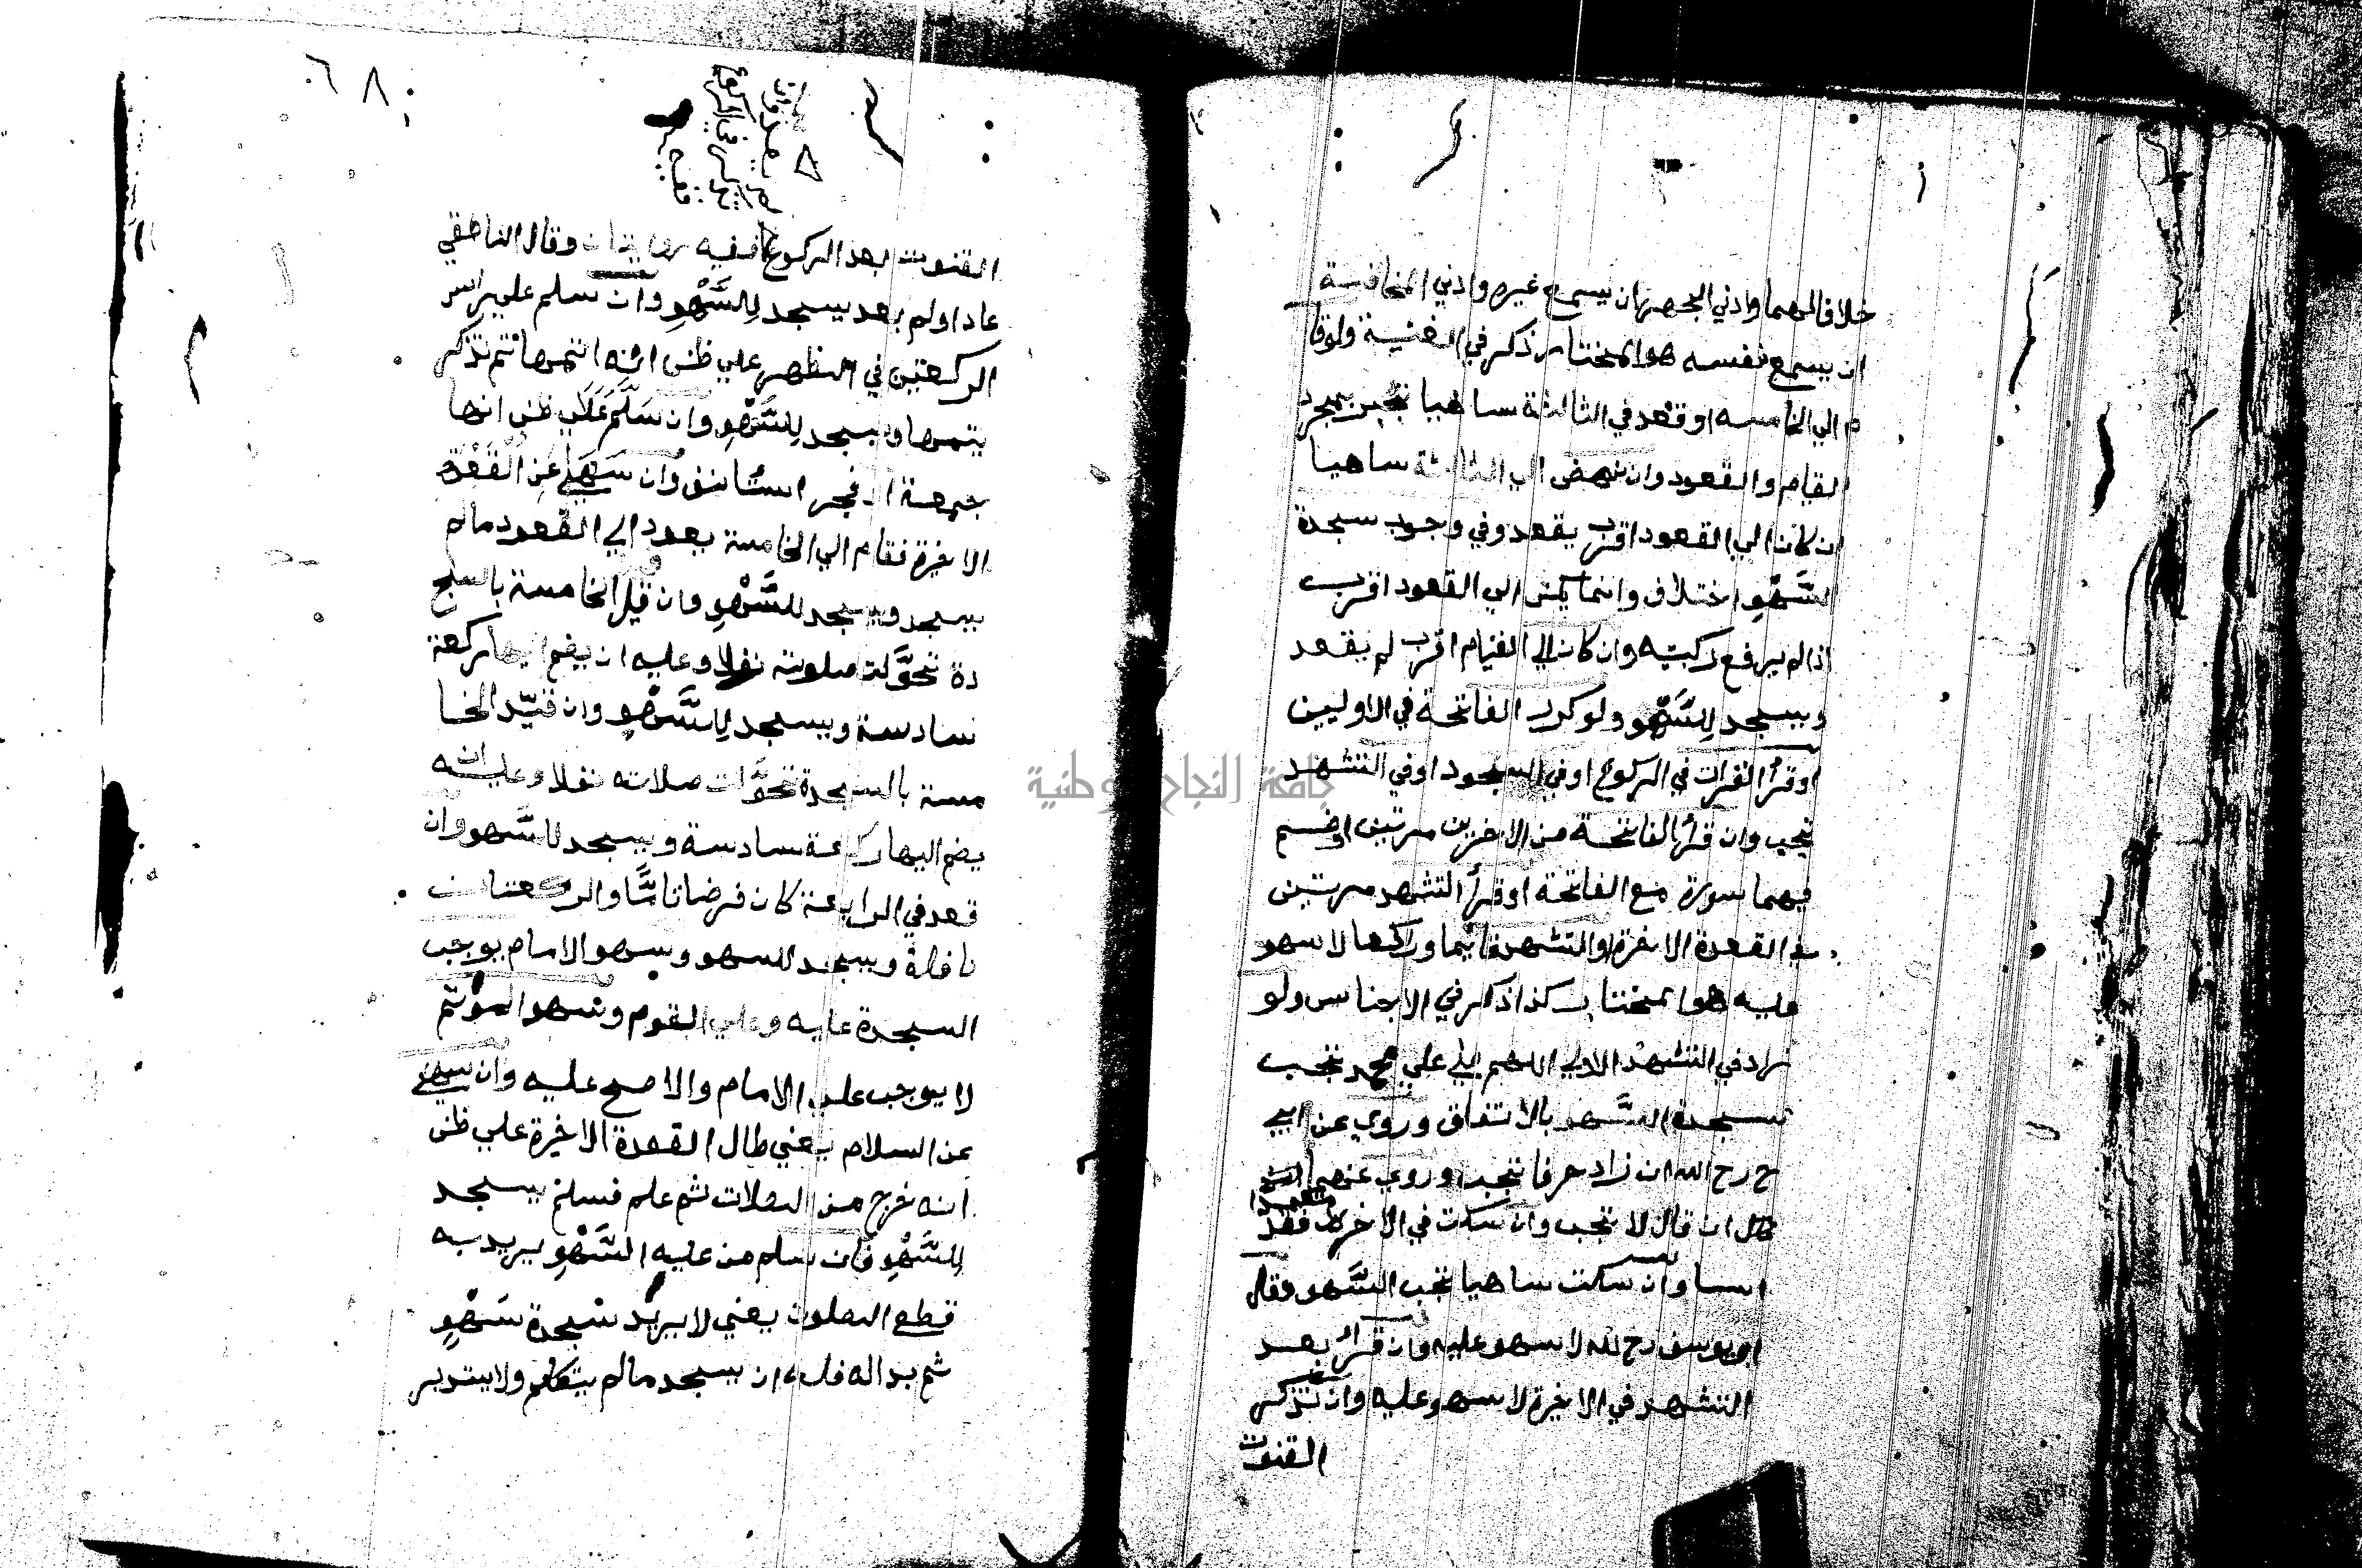 خلافا لهما وادني الجهر ان يسمع غيره وادني المخافتة
ان يسمع نفسه هو المختار ذكر في الغنية ولو قا
م الي الخامسه او قعد في الثالثة ساهيا تجب بمجرد
القيام والقعود وان نهض الي الثالثة ساهيا
ان كان الي القعود اقرب يقعد وفي وجوب سجدة
السَّهْوِ اختلاف وانما يكن الي القعود اقرب
اذا لم يرفع ركبتيه وان كان الي القيام اقرب لم يقعد
ويسجد للسَّهْو ولو كرر الفاتحة في الاوليين
او قرأ القرات في الركوع او في السجود او في التشهد
تجب وان قرأ الفاتحة من الاخريين مرتين او ضم
فيهما سورة مع الفاتحة او قرأ التشهد مرتين
في القعدة الاخرة او التشهد قائما وراكعا لا سهو
عليه هو المختار كذا ذكر في الاجناس ولو
زاد في التشهد الاولي اللهم صلي علي محمد تجب
سجدة السَّهو بالاتفاق وروي عن ابي
ح رح الله ان زاد حرفا تجب وروي عنهما
ان قال لا تجب وان سكت في الاخريين فقد
اسا وان سكت ساهيا تجب السَّهو وقال
ابو يوسف رح لله لا سهو عليه وان قرأ بعد
التشهد في الاخرة لا سهو عليه وان تذكر
القنوت
٦٨
القنوت بعد الركوع ففيه روايتان وقال الناطقي
عاد اولم يعد يسجد لِلسَّهْوِ وان سلم علي راس
الركعتين في الظهر علي ظن انه اتمها ثم تذكر
يتمها ويسجد لِلسَّهْوِ وان سَلَّمَ عَلَي ظن انها
جمعة او فجر استانف وان سَهَي عن القَعْدة
الاخرة فقام الي الخامسة يعود الي القعود مالم
يسجد ويسجد للسَّهْوِ وان قيد الخامسة بالسج
دة تحوَّلت صلوته نفلا وعليه ان يضم اليها ركعة
سادسة ويسجد لِلسَّهْوِ وان قيّد الخا
مسة بالسجدة تحوَّلت صلاته نفلا وعليه ان
يضم اليها ركعة سادسة ويسجد للسَّهو وان
قعد في الرابعة كان فرضا تامَّا والركعتان
نافلة ويسجد للسهو وسهو الامام يوجب
السجدة عليه وعلي القوم وسهو المؤتم
لا يوجب علي الامام والاصح عليه وان سهي
عن السلام يعني طال القعدة الاخيرة علي ظن
انه خرج من الصلات ثم علم فسلم يسجد
لِلسَّهْوِ فان سلم من عليه السَّهْوِ يريد به
قطع الصلوت يعني لا يريد سجدة سَهْوٍ
ثم بداله فله ان يسجد مالم يتكلم ولا يستدبر
جامعة النجاح الوطنية